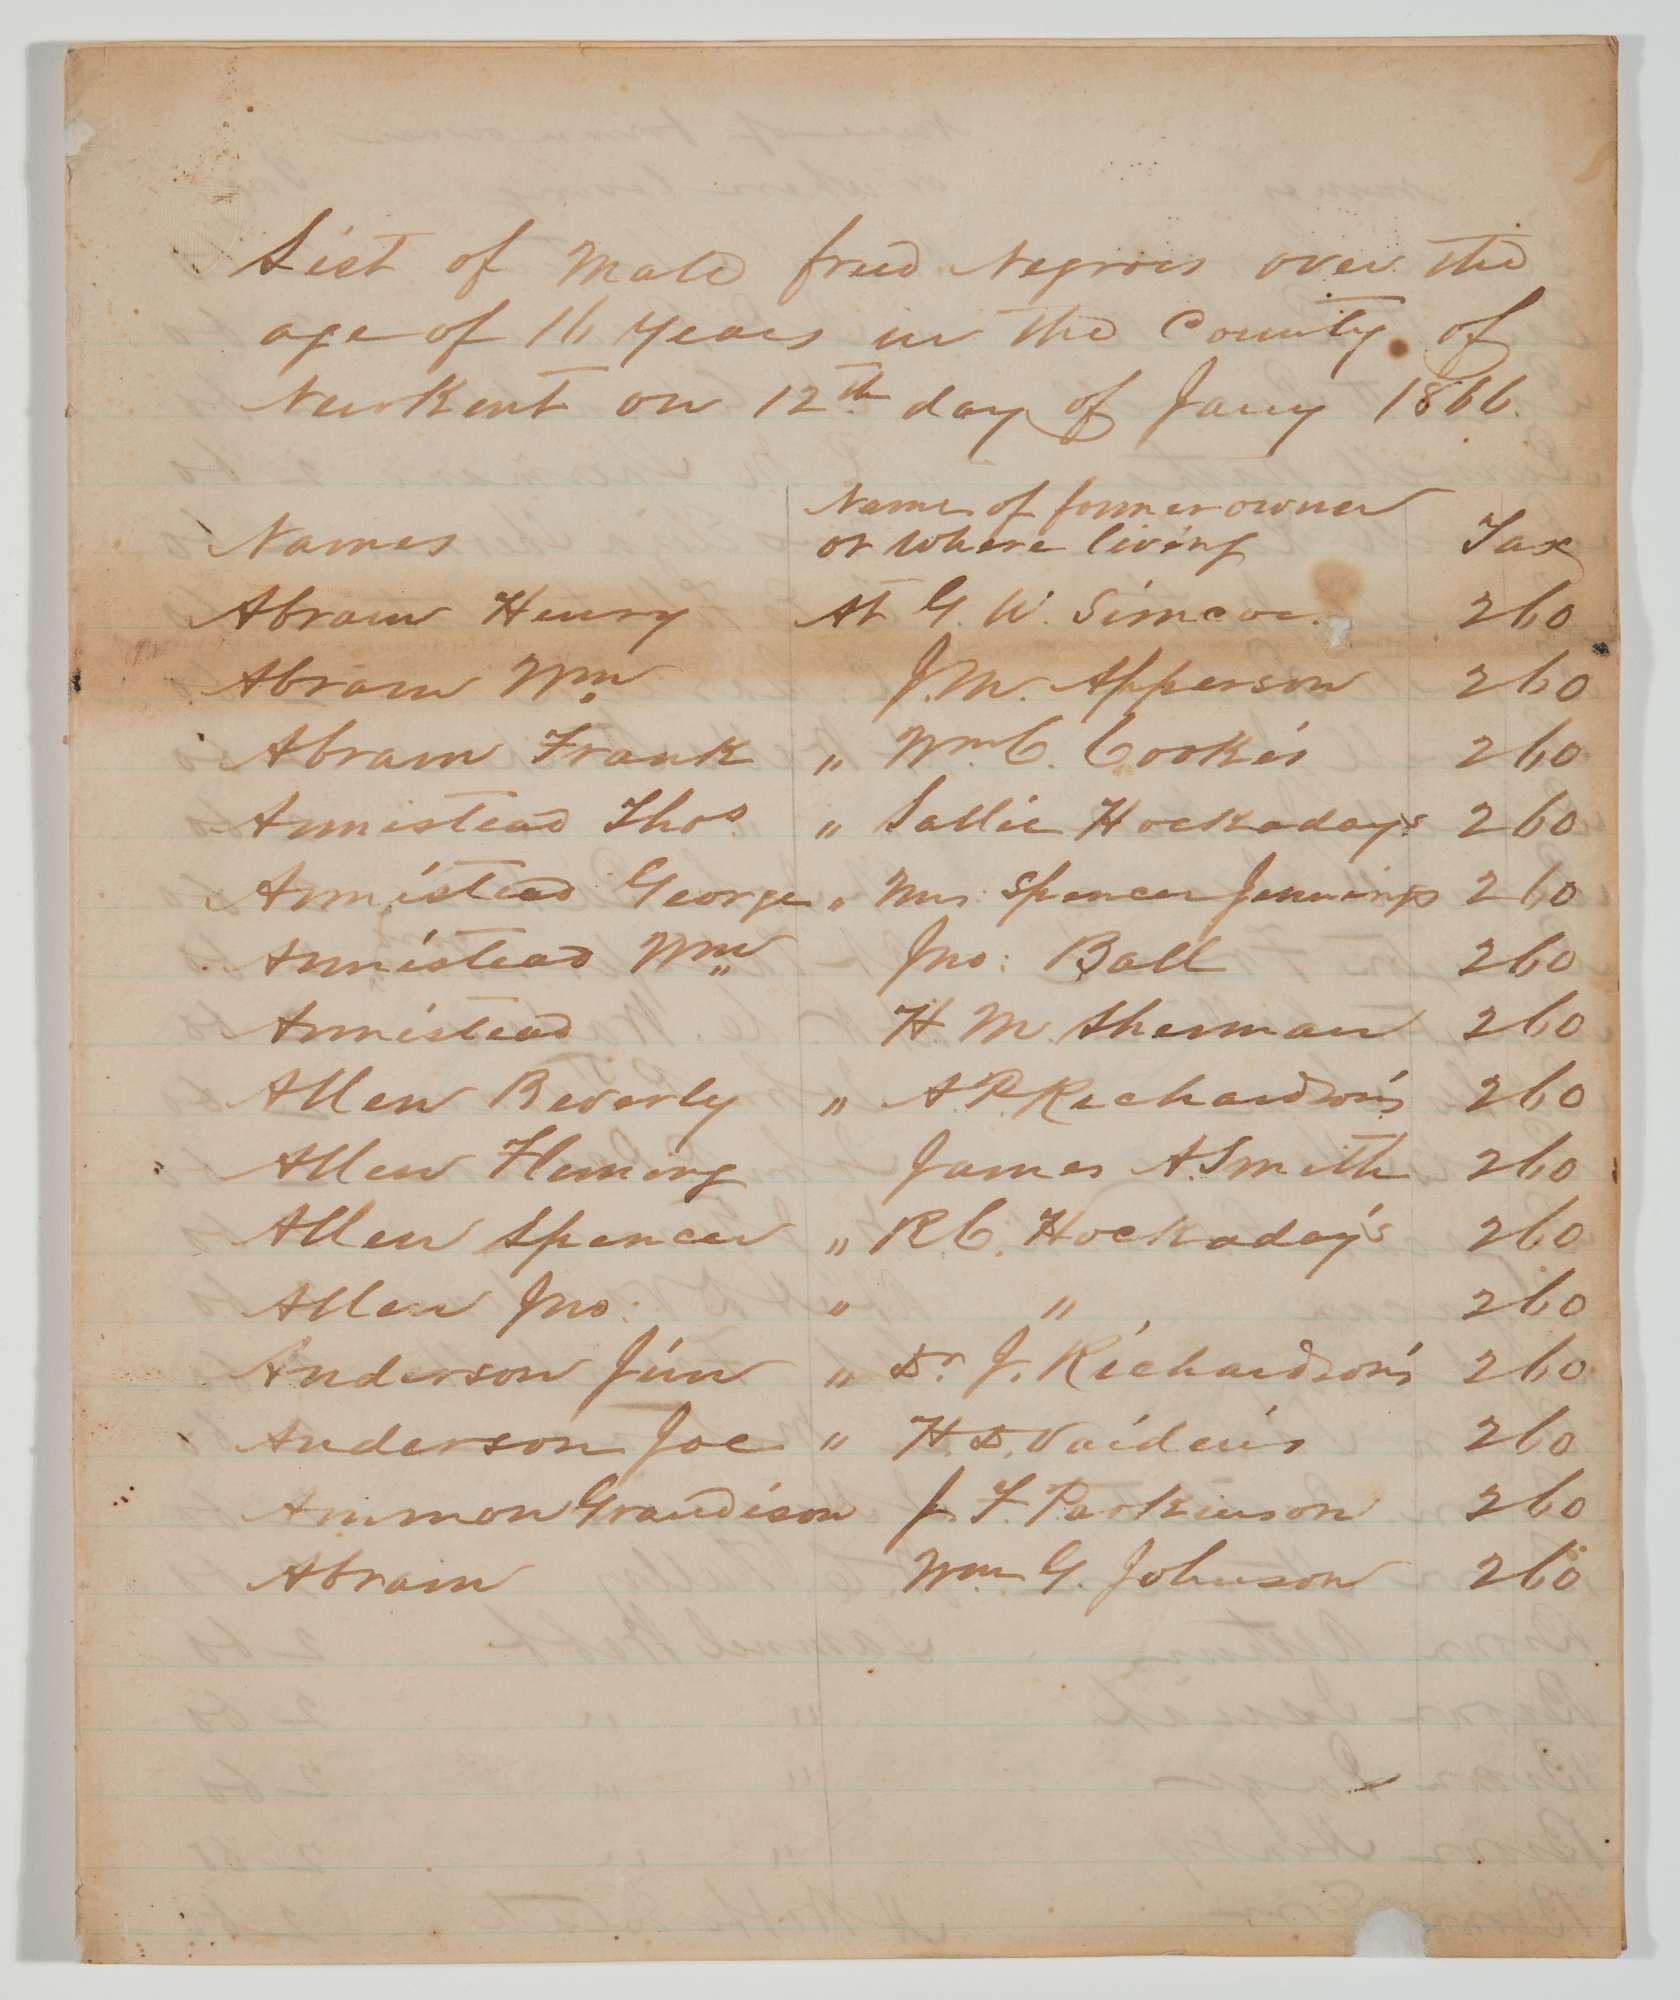 List of Male freed Negroes over the
age of 16 years in the County of
New Kent on 12th day of Jany 1866.
Names Name of former owner
or where living Tax
Abram Henry At G. W. Simcoe. 260
Abram Wm J. M. Apperson 260
Abram Frank " Wm. C. Cooke's 260
Armistead Thos " Sallie Hockaday's 260
Armistead George " Mrs. Spencer Jennings 260
Armistead Wm Jno: Ball 260
Armistead H. M. Sherman 260
Allen Beverly " A. P. Richardson's 260
Allen Fleming James A. Smith 260
Allen Spencer " R. C. Hockaday's 260
Allen Jno: " " 260
Anderson Jim " Dr. J. Richardson's 260
Anderson Joe " H. D. Vaiden's 260
Ammon Grandison J. F. Parkinson 260
Abram Wm G. Johnson 260